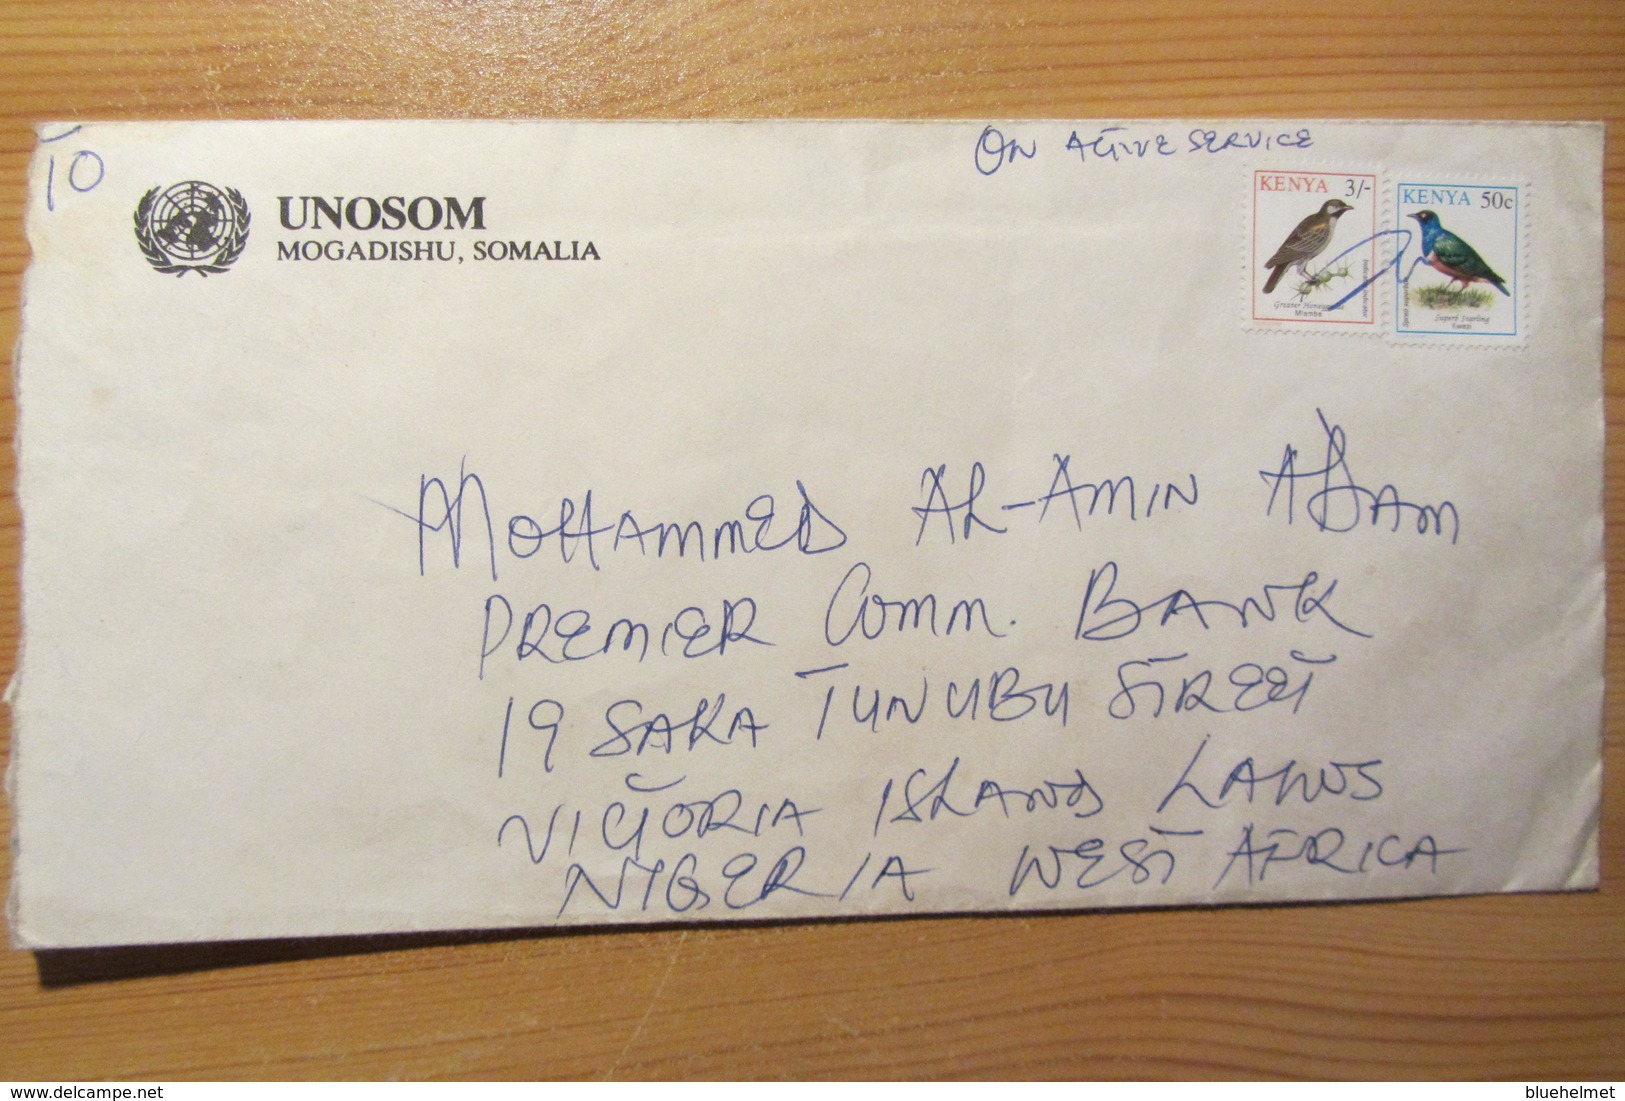 ON ACTIVE SERVICE
10
UNOSOM
MOGADISHU, SOMALIA
KENYA 3/-
Greater
Miombe
KENYA 50c
Superb Starling
Kwezi
MOHAMMED AL-AMIN ADAM
PREMIER Comm. BANK
19 SAKA TUNUBU STREET
VICTORIA ISLAND LAGOS
NIGERIA WEST AFRICA
www.delcampe.net
bluehelmet